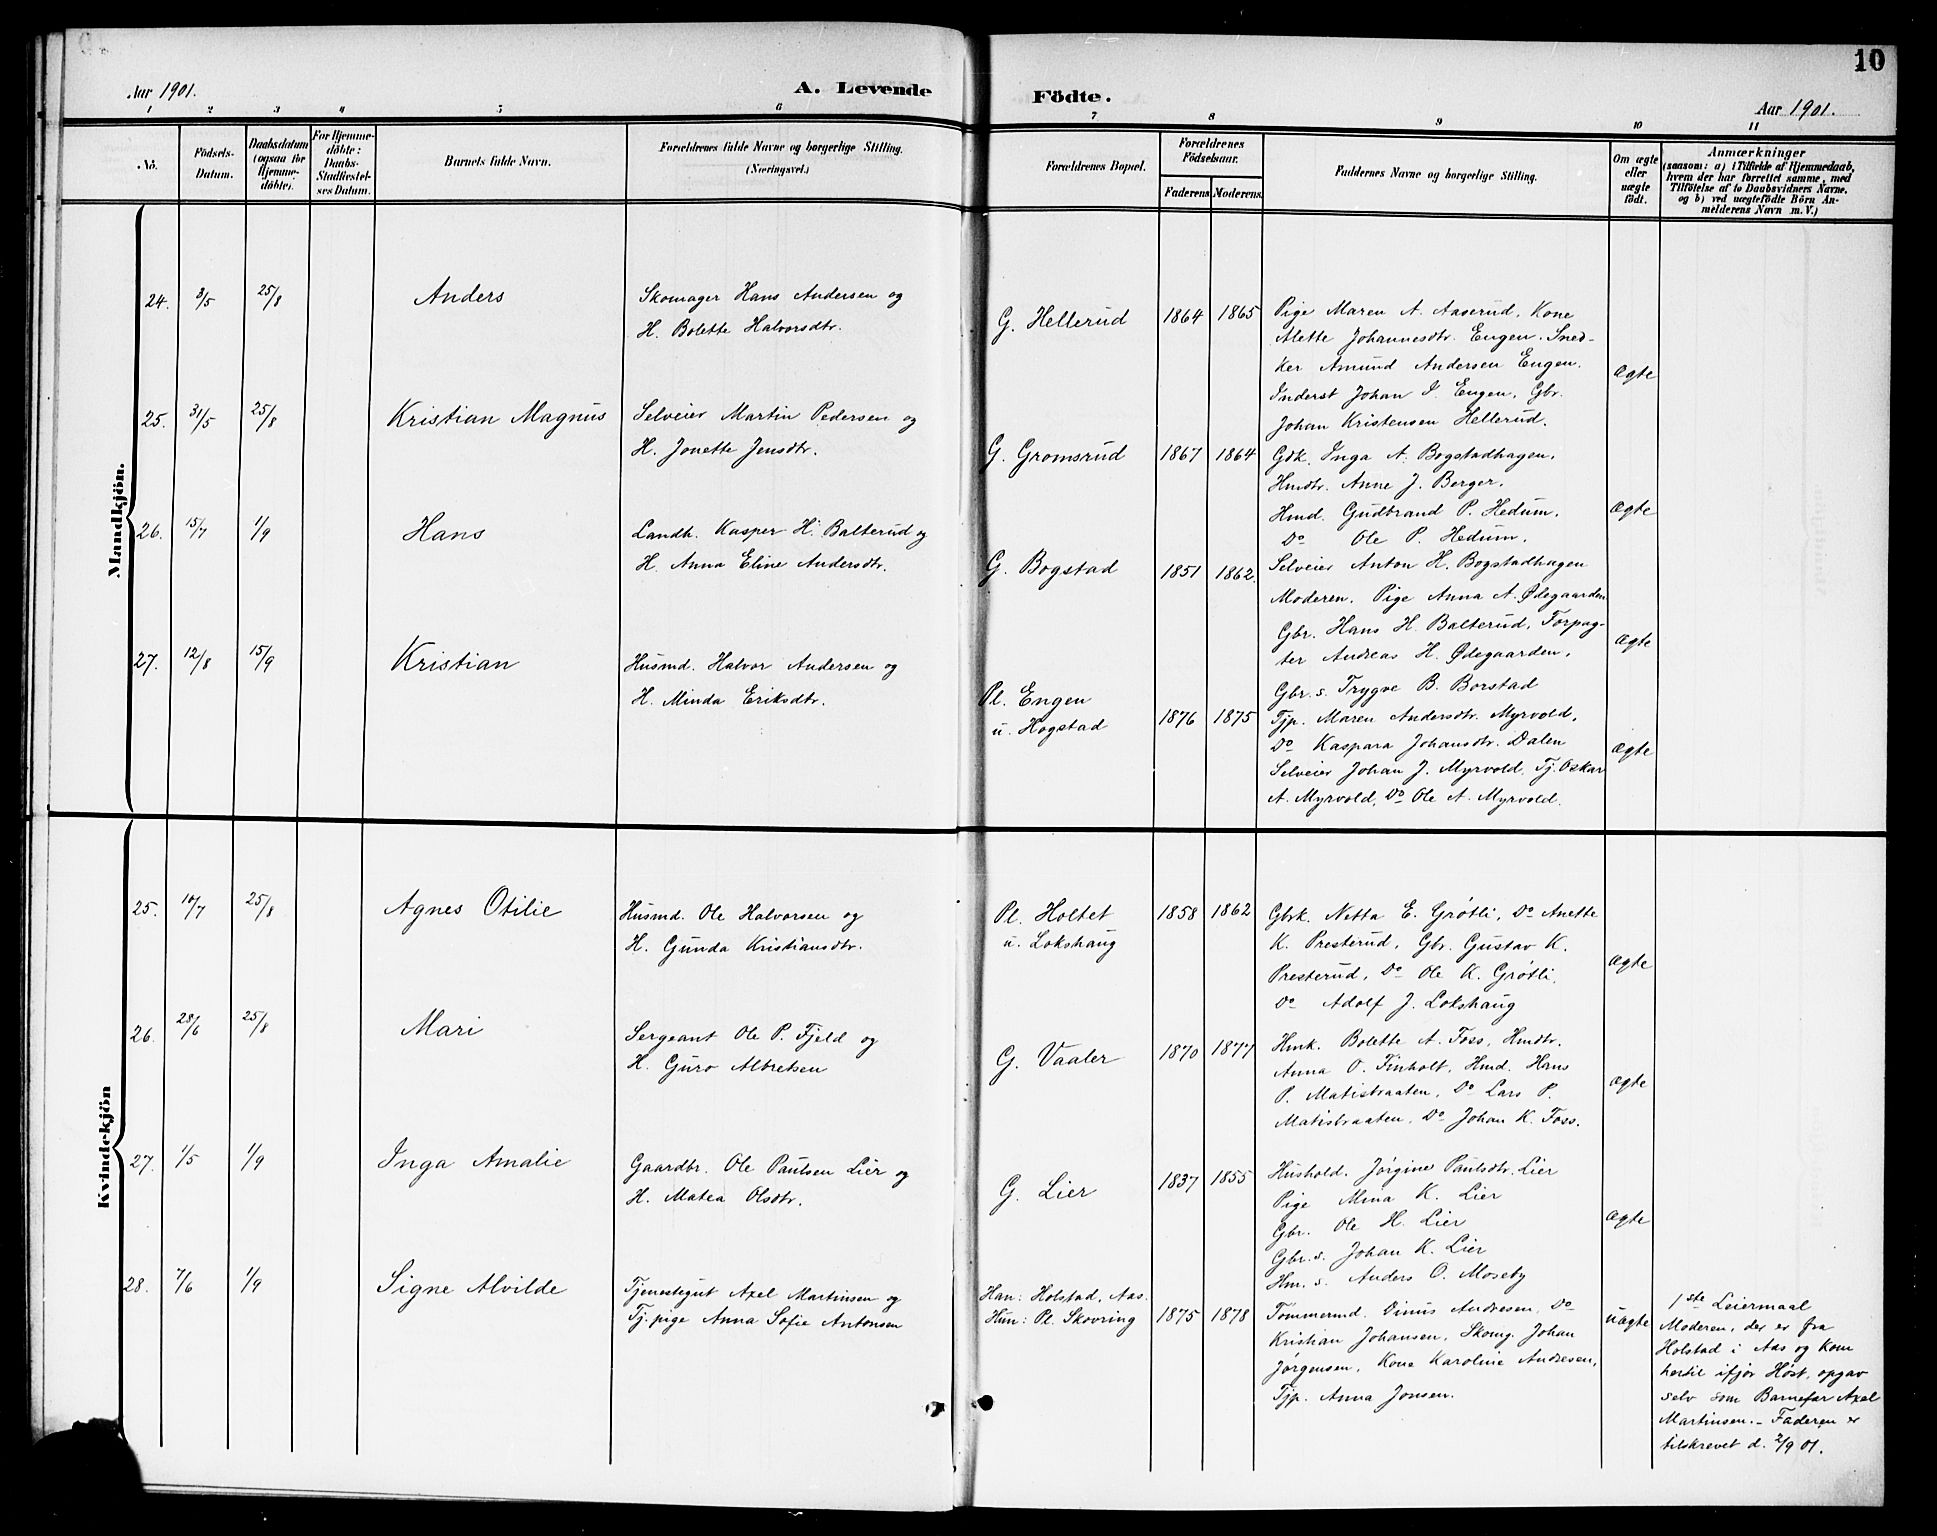 10
Aar 1901.
A. Levende Födte.
Aar 1901.
1 2 3 4 5 6 7 8 9 10 11
No.
Födsels-Datum.
Daabsdatum (ogsaa for Hjemme-döbte).
For Hjemme-döbte: Daabs-Stadfæstel-ses Datum.
Barnets fulde Navn.
Forældrenes fulde Navne og borgerlige Stilling.
(Næringsvei.)
Forældrenes Bopæl.
Forældrenes Födselsaar.
Faderens Moderens.
Faddernes Navne og borgerlige Stilling.
Om ægte eller uægte födt.
Anmærkninger
(saasom: a) i Tilfælde af Hjemmedaab,
hvem der har forrettet samme, med
Tilföielse af to Daabsvidners Navne.
og b) ved uægtefödte Börn An-
melderens Navn m. V.)
Mandkjön.
24. 3/5 25/8 Anders
Skomager Hans Andersen og
H. Bolette Halvorsdtr.
G. Hellerud 1864 1865
Pige Maren A. Aaserud, Kone
Alette Johannesdtr. Engen. Sned-
ker Amund Andersen Engen.
Inderst Johan I. Engen, Gbr.
Johan Kristensen Hellerud.
Ægte
25. 31/5 25/8 Kristian Magnus
Selveier Martin Pedersen og
H. Jonette Jensdtr.
G. Gromsrud 1867 1864
Gdk. Inga A. Bogstadhagen,
Hmdtr. Anne J. Berger.
Hmd. Gudbrand P. Hedum.
Do Ole P. Hedum.
Selveier Anton H. Bogstadhagen
Ægte
26. 15/7 1/9 Hans
Landh. Kasper H. Balterud og
H. Anna Eline Andersdtr.
G. Bogstad 1851 1862.
Moderen. Pige Anna A. Ødegaarden
Gbr. Hans H. Balterud, Forpag-
ter Andreas H. Ødegaarden,
Gbr.s. Trygve B. Borstad
Ægte
27. 12/8 15/9 Kristian
Husmd. Halvor Andersen og
H. Minda Eriksdtr.
Pl. Engen
u. Hogstad 1876 1875
Tjp. Maren Andersdtr. Myrvold,
Do Kaspara Johansdtr. Dalen
Selveier Johan J. Myrvold. Tj. Oskar
A. Myrvold, Do Ole A. Myrvold.
Ægte
Kvindekjön
25. 10/7 25/8 Agnes Otilie
Husmd. Ole Halvorsen og
H. Gunda Kristiansdtr.
Pl. Holtet
u. Lokshaug 1858 1862
Gbrk. Netta E. Grøtli, Do Anette
K. Presterud, Gbr. Gustav K.
Presterud, Do Ole K. Grøtli,
Do Adolf J. Lokshaug
Ægte
26. 28/6 25/8 Mari
Sergeant Ole P. Fjeld og
H. Guro Albretsen
G. Vaaler 1870 1877
Hmk. Bolette A. Foss, Hmdtr.
Anna O. Finholt, Hmd. Hans
P. Matistraaten, Do Lars P.
Matistraaten, Do Johan K. Foss.
Ægte
27. 1/5 1/9 Inga Amalie
Gaardbr. Ole Paulsen Lier og
H. Matea Olsdtr.
G. Lier 1837 1855
Hushold. Jørgine Paulsdtr. Lier
Pige Mina K. Lier
Gbr. Ole H. Lier
Gbr.s. Johan K. Lier
Hm.s. Anders O. Moseby
Ægte
28. 7/6 1/9 Signe Alvilde
Tjenestegut Axel Martinsen og
Tj.pige Anna Sofie Antonsen
Han: Holstad, Aas.
Hun: Pl. Skovring 1875 1878
Tømmermd. Dinus Andresen, Do
Kristian Johansen, Skomg. Johan
Jørgensen, Kone Karoline Andresen,
Tjp. Anna Jonsen.
Uægte
1ste Leiermaal
Moderen, der er fra
Holstad i Aas og kom
hertil ifjor Høst, opgav
selv som Barnefar Axel
Martinsen. – Faderen er
tilskrevet d. 2/9 01.